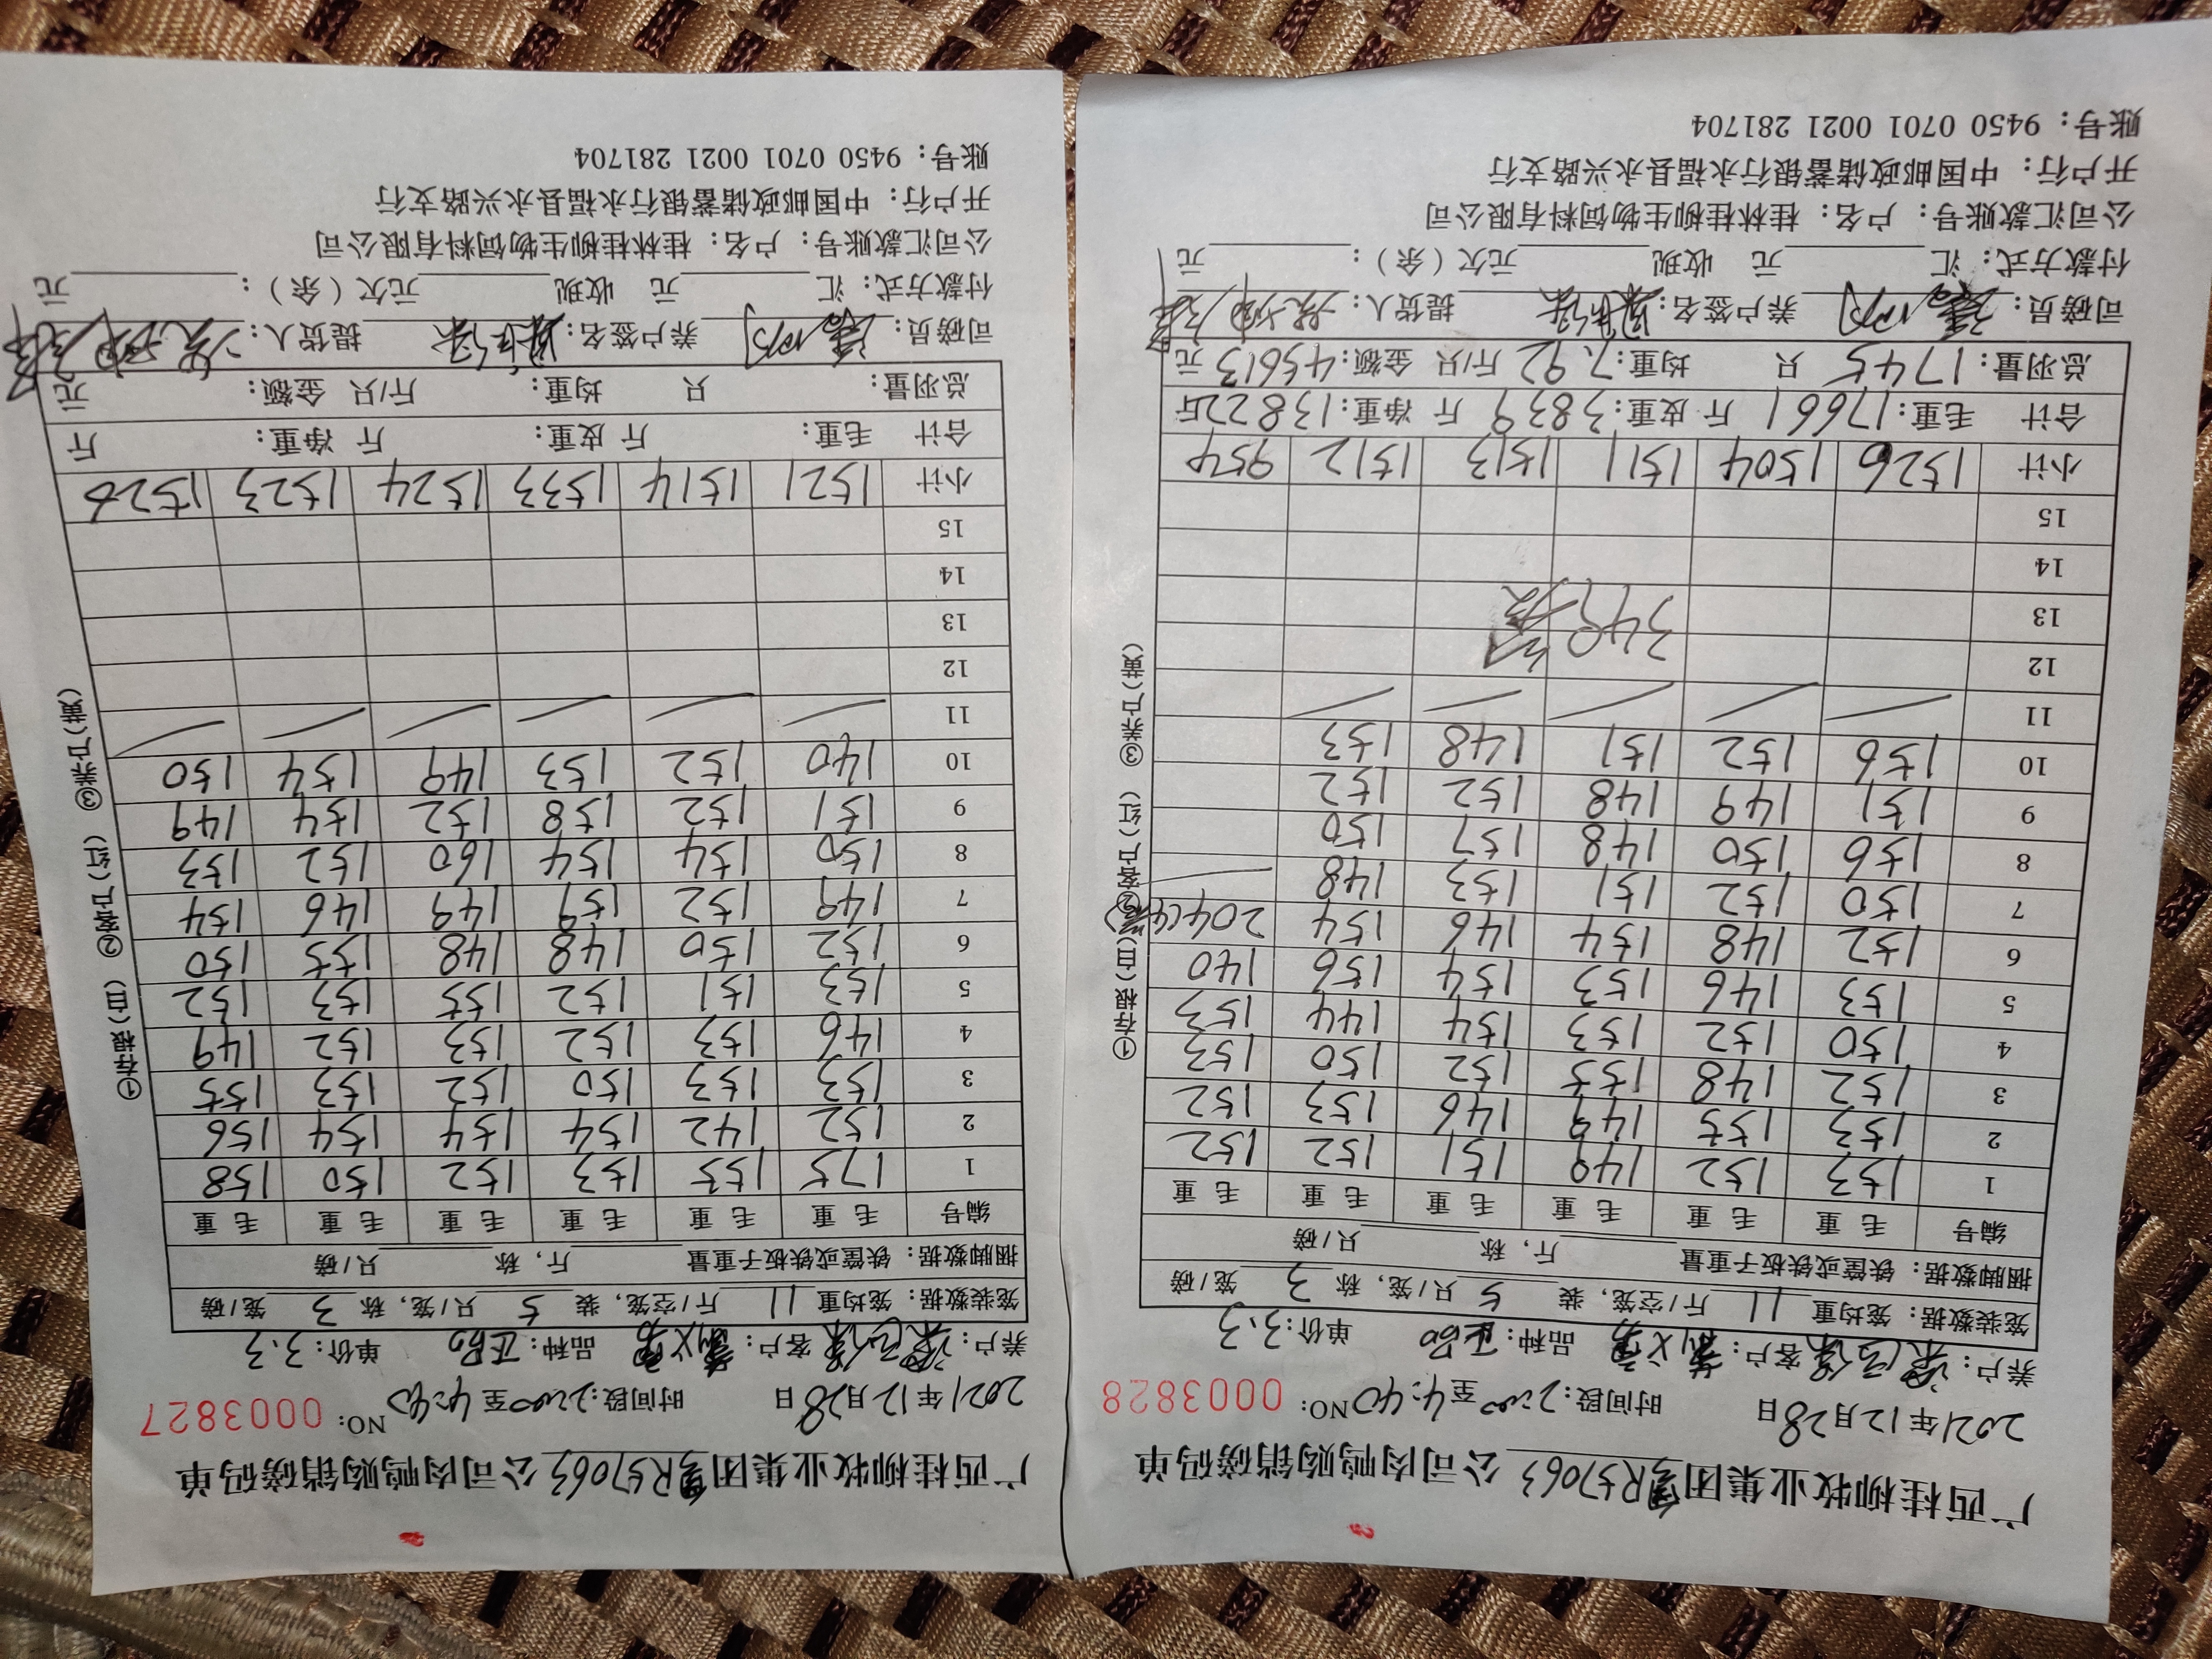 广西桂柳牧业集团 R57063 公司肉鸭购销磅码单
2021年12月28日 时间段：2:00至4:40 NO: 0003828
养户： 客户： 品种：正品 单价：3.3
笼装数据：笼均重 11 斤/空笼，装 5 只/笼，称 3 笼/磅
捆脚数据：铁筐或铁板子重量 斤，称 只/磅
编号 毛重 毛重 毛重 毛重 毛重 毛重
1 153 152 149 151 152 152
2 153 155 149 146 153 152
3 152 148 155 152 150 153
4 150 152 153 154 144 153
5 153 146 153 154 156 140
6 152 148 154 146 154 204(4笼)
7 150 152 151 153 148
8 156 150 148 157 150
9 151 149 148 152 152
10 156 152 151 148 153
11
12 349
13
14
15
小计 1526 1504 1511 1513 1512 954
合计 毛重：17661 斤 皮重：3839 斤 净重：13822斤
总羽量：1745 只 均重：7.92 斤/只 金额：45613 元
司磅员： 养户签名： 提货人：
付款方式：汇 元 收现 元欠（余）： 元
公司汇款账号：户名：桂林桂柳生物饲料有限公司
开户行：中国邮政储蓄银行永福县永兴路支行
账号：9450 0701 0021 281704
①存根(白) ②客户(红) ③养户(黄)
广西桂柳牧业集团 R57063 公司肉鸭购销磅码单
2021年12月28日 时间段：2:00至4:40 NO: 0003827
养户： 客户： 品种：正品 单价：3.3
笼装数据：笼均重 11 斤/空笼，装 5 只/笼，称 3 笼/磅
捆脚数据：铁筐或铁板子重量 斤，称 只/磅
编号 毛重 毛重 毛重 毛重 毛重 毛重
1 175 155 153 152 150 158
2 152 142 154 154 154 156
3 153 153 150 152 153 155
4 146 153 152 153 152 149
5 153 151 152 155 153 152
6 152 150 148 148 155 150
7 149 152 159 149 146 154
8 150 154 154 160 152 153
9 151 152 158 152 154 149
10 140 152 153 149 154 150
11
12
13
14
15
小计 1521 1514 1533 1524 1523 1526
合计 毛重： 斤 皮重： 斤 净重： 斤
总羽量： 只 均重： 斤/只 金额： 元
司磅员： 养户签名： 提货人：
付款方式：汇 元 收现 元欠（余）： 元
公司汇款账号：户名：桂林桂柳生物饲料有限公司
开户行：中国邮政储蓄银行永福县永兴路支行
账号：9450 0701 0021 281704
①存根(白) ②客户(红) ③养户(黄)